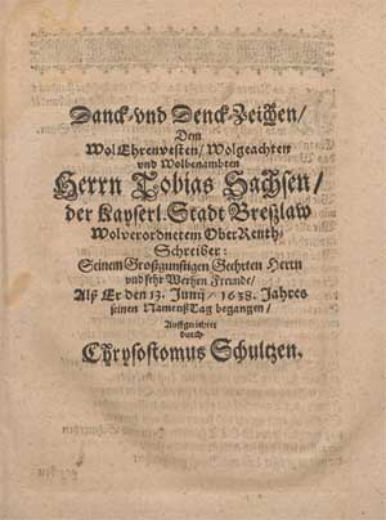 Danck- vnd Denck-Zeichen/
Dem
WolEhrenvesten/ Wolgeachten
vnd Wolbenambten
Herrn Tobias Sachsen/
der Kayserl. Stadt Breßlaw
Wolverordnetem OberRenth-
Schreiber:
Seinem Großgunstigen Geehrten Herrn
vnd sehr Werthen Freunde/
Alß Er den 13. Junij/ 1638. Jahres
seinen NamenßTag begangen/
Auffgerichtet
durch
Chrysostomus Schultzen.